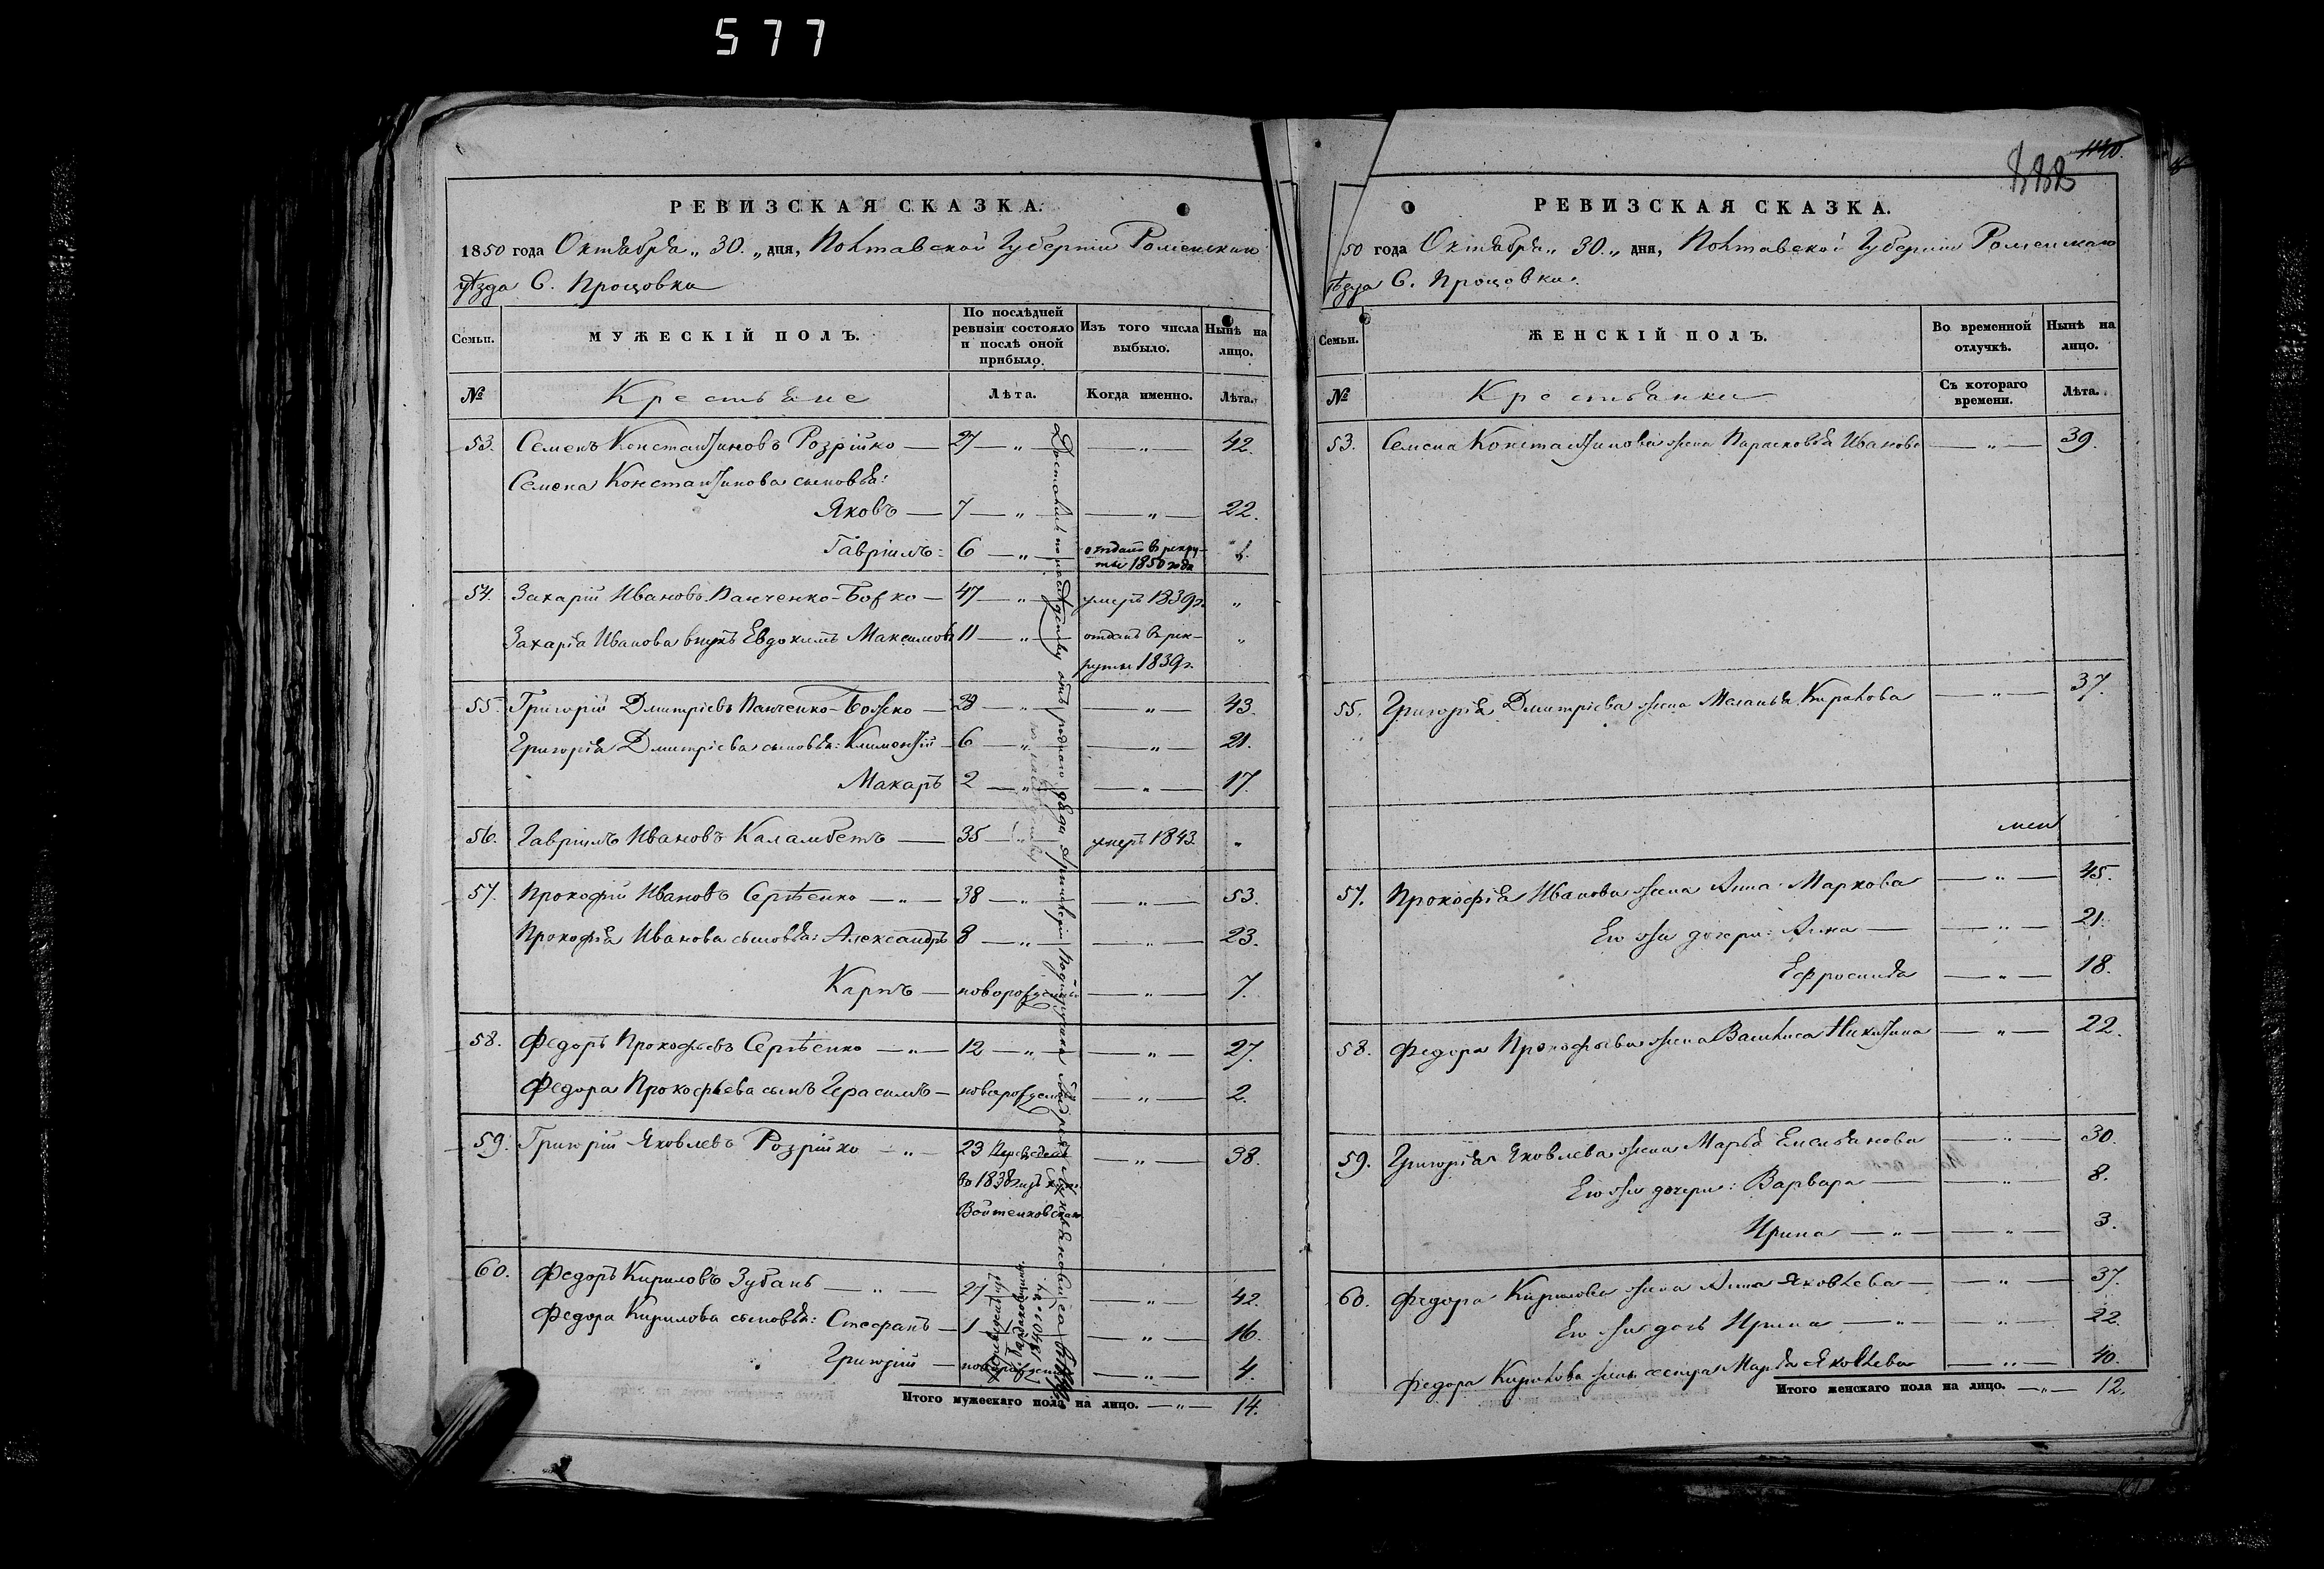 577
РЕВИЗСКАЯ СКАЗКА.
1850 года Октября „ 30. „ дня, Полтавской Губерніи Роменскаго
уѣзда С. Процовки
Семьи.
МУЖЕСКІЙ ПОЛЪ.
По послѣдней ревизіи состояло и послѣ оной прибыло.
Изъ того числа выбыло.
Нынѣ на лицо.
№
Крестьяне
Лѣта.
Когда именно.
Лѣта.
53. Семенъ Константиновъ Розрійко — 27 — „ — — „ — 42.
Семена Константинова сыновья:
Яковъ — 7 — „ — — „ — 22.
Гавріилъ: 6 — „ — отданъ въ рекру-
ты 1850 года
54. Захарій Ивановъ Панченко-Божко — 47 — „ — умеръ 1839 г. „
Захарія Иванова внукъ Евдокимъ Максимовъ 11 — „ — отданъ въ рек- „
руты 1839 г.
55. Григорій Дмитріевъ Панченко-Божко — 28 — „ — — „ — 43.
Григорія Дмитріева сыновья: Климентій — 6 — „ — — „ — 21.
Макаръ 2 — „ — — „ — 17.
56. Гавріилъ Ивановъ Каламбетъ — 35 — „ умеръ 1843. „
57. Прокофій Ивановъ Сергѣенко — „ — 38 — „ — — „ — 53.
Прокофія Иванова сыновья: Александръ 8 — „ — — „ — 23.
Карпъ — новорожденный — „ — 7.
58. Федоръ Прокофьевъ Сергѣенко — „ — 12 — „ — — „ — 27.
Федора Прокофьева сынъ Герасимъ — новорожденный — „ — 2.
59. Григорій Яковлевъ Розрійко — „ 23 Переведенъ — „ — 38.
въ 1838 изъ
Войтенковскаго
60. Федоръ Кириловъ Зубань — „ — 27 — „ — 42.
Федора Кирилова сыновья: Стефанъ — 1 — „ — 16.
Григорій — новорожден. — „ — 4.
Достались по наслѣдству отъ роднаго дяди
переведены изъ
въ 1840 г.
Итого мужескаго пола на лицо. — „ — 14.
1140.
РЕВИЗСКАЯ СКАЗКА.
50 года Октября „ 30. „ дня, Полтавской Губерніи Роменскаго
ѣзда С. Процовки.
Семьи.
ЖЕНСКІЙ ПОЛЪ.
Во временной отлучкѣ.
Нынѣ на лицо.
№
Крестьянки
Съ котораго времени.
Лѣта.
53. Семена Константинова жена Парасковья Иванова — „ — 39.
55. Григорія Дмитріева жена Меланья Кирилова — „ — 37.
57. Прокофія Иванова жена Анна Маркова — „ — 45.
Его же дочери: Анна — — „ — 21.
Ефросинія — „ — 18.
58. Федора Прокофьева жена Василиса Никитина — „ — 22.
59. Григорія Яковлева жена Марья Емельянова — „ — 30.
Его же дочери: Варвара — — „ — 8.
Ирина — „ — — „ — 3.
60. Федора Кирилова жена Анна Яковлева — — „ — 37.
Его же дочь Ирина — „ — — „ — 22.
Федора Кирилова жены сестра Марья Яковлева — „ — 40.
Итого женскаго пола на лицо. — „ — 12.